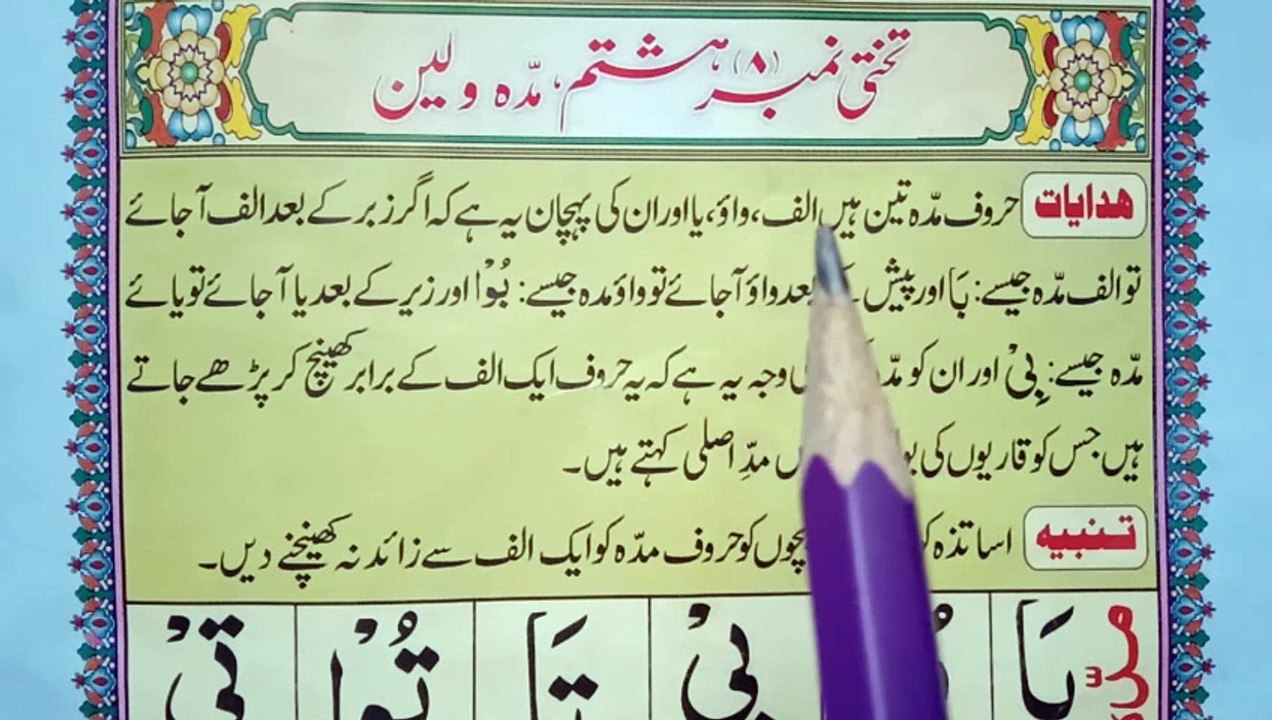 تختی نمبر (۸) ہشتم، مدّہ ولین
ھدایات حروف مدّہ تین ہیں الف، واؤ، یا اور ان کی پہچان یہ ہے کہ اگر زبر کے بعد الف آجائے
تو الف مدّہ جیسے: بَا اور پیش بعد واؤ آجائے تو واؤ مدہ جیسے: بُوْا اور زیر کے بعد یا آجائے تو یائے
مدّہ جیسے: بِیْ اور ان کو وجہ یہ ہے کہ یہ حروف ایک الف کے برابر کھینچ کر پڑھے جاتے
ہیں جس کو قاریوں کی مدِّ اصلی کہتے ہیں۔
تنبیہ اساتذہ بچوں کو حروف مدّہ کو ایک الف سے زائد نہ کھینچنے دیں۔
بَا بِیْ تَا تُوْا تِیْ